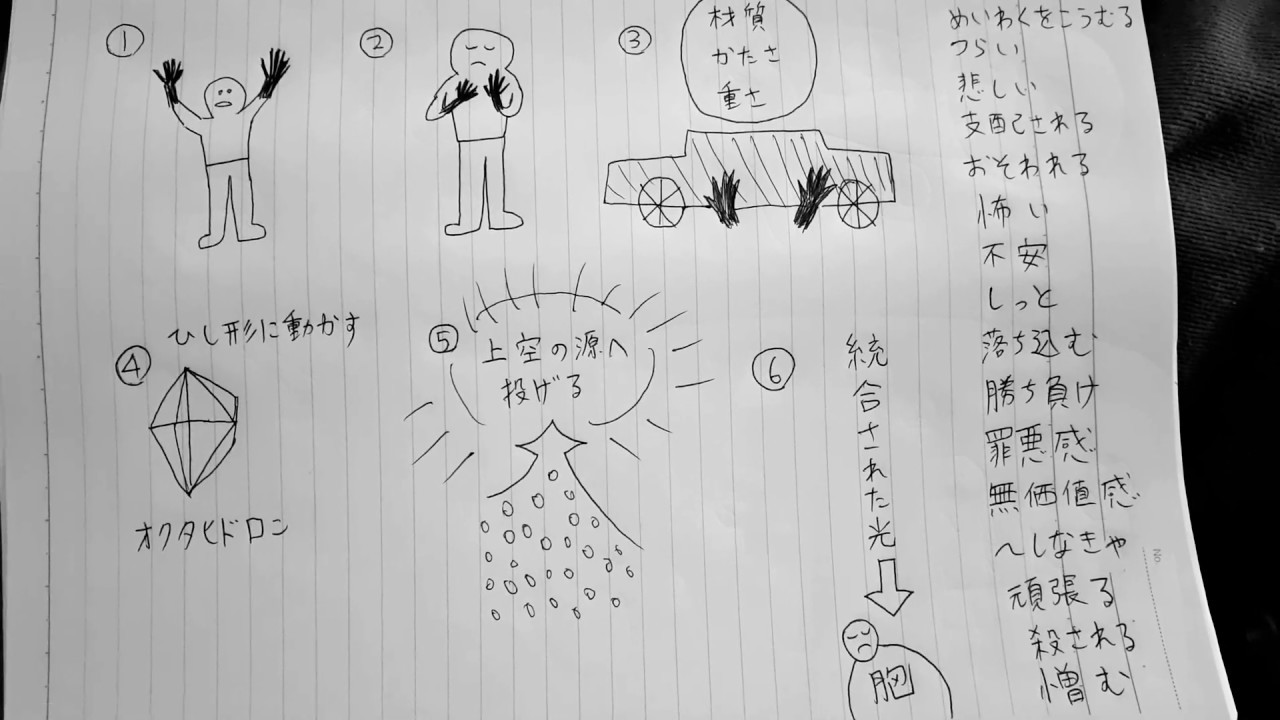 ①
②
③
材質
かたさ
重さ
ひし形に動かす
④
オクタヒドロン
⑤
上空の源へ
投げる
⑥
統合された光
胸
めいわくをこうむる
つらい
悲しい
支配される
おそわれる
怖い
不安
しっと
落ち込む
勝ち負け
罪悪感
無価値感
〜しなきゃ
頑張る
殺される
憎む
No.